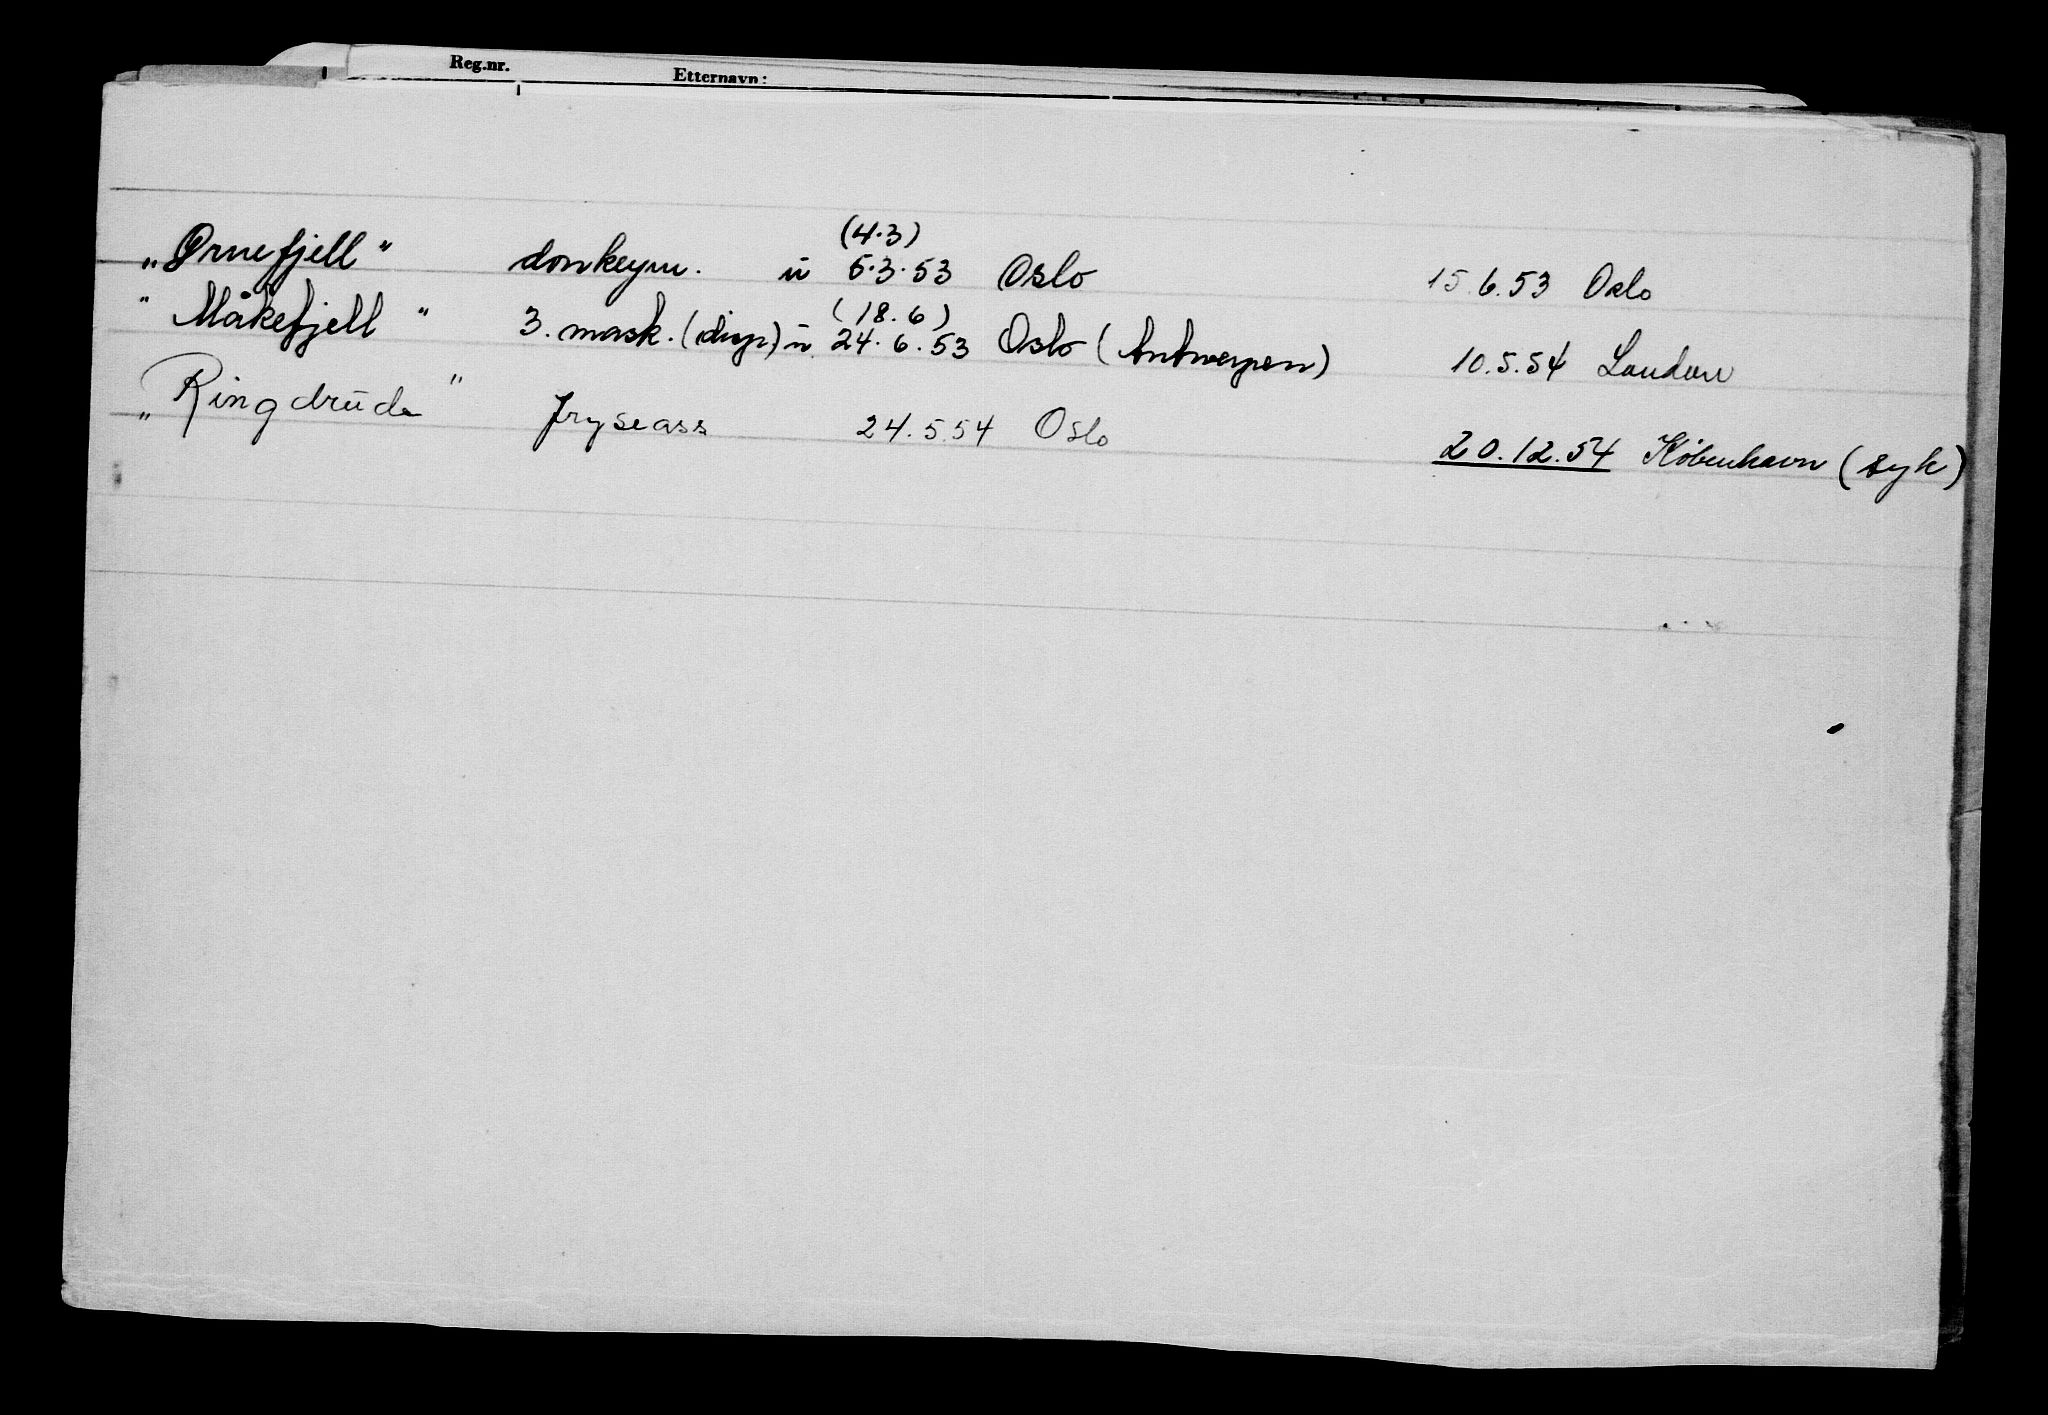 Reg.nr. Etternavn:
(4.3)
„Ørnefjell" donkeym. ū 5.3.53 Oslo 15.6.53 Oslo
(18.6)
" Måkefjell " 3. mask. (disp) ū 24.6.53 Oslo (Antwerpen) 10.5.54 London
„Ringdrude" fryseass 24.5.54 Oslo 20.12.54 København (syk)